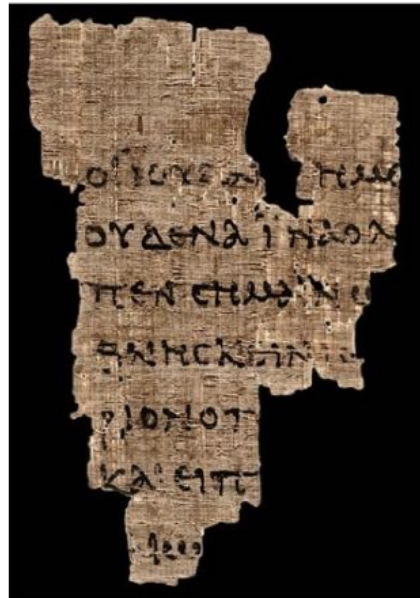 ΟΙΙΟΥΔΑΙ ΗΜΕ
ΟΥΔΕΝΑΪΝΑΟΛ
ΠΕΝCΗΜΑΙΝΩ
ΘΝΗCΚΕΙΝΙC
ΡΙΟΝΟΠ
ΚΑΙΕΙΠ